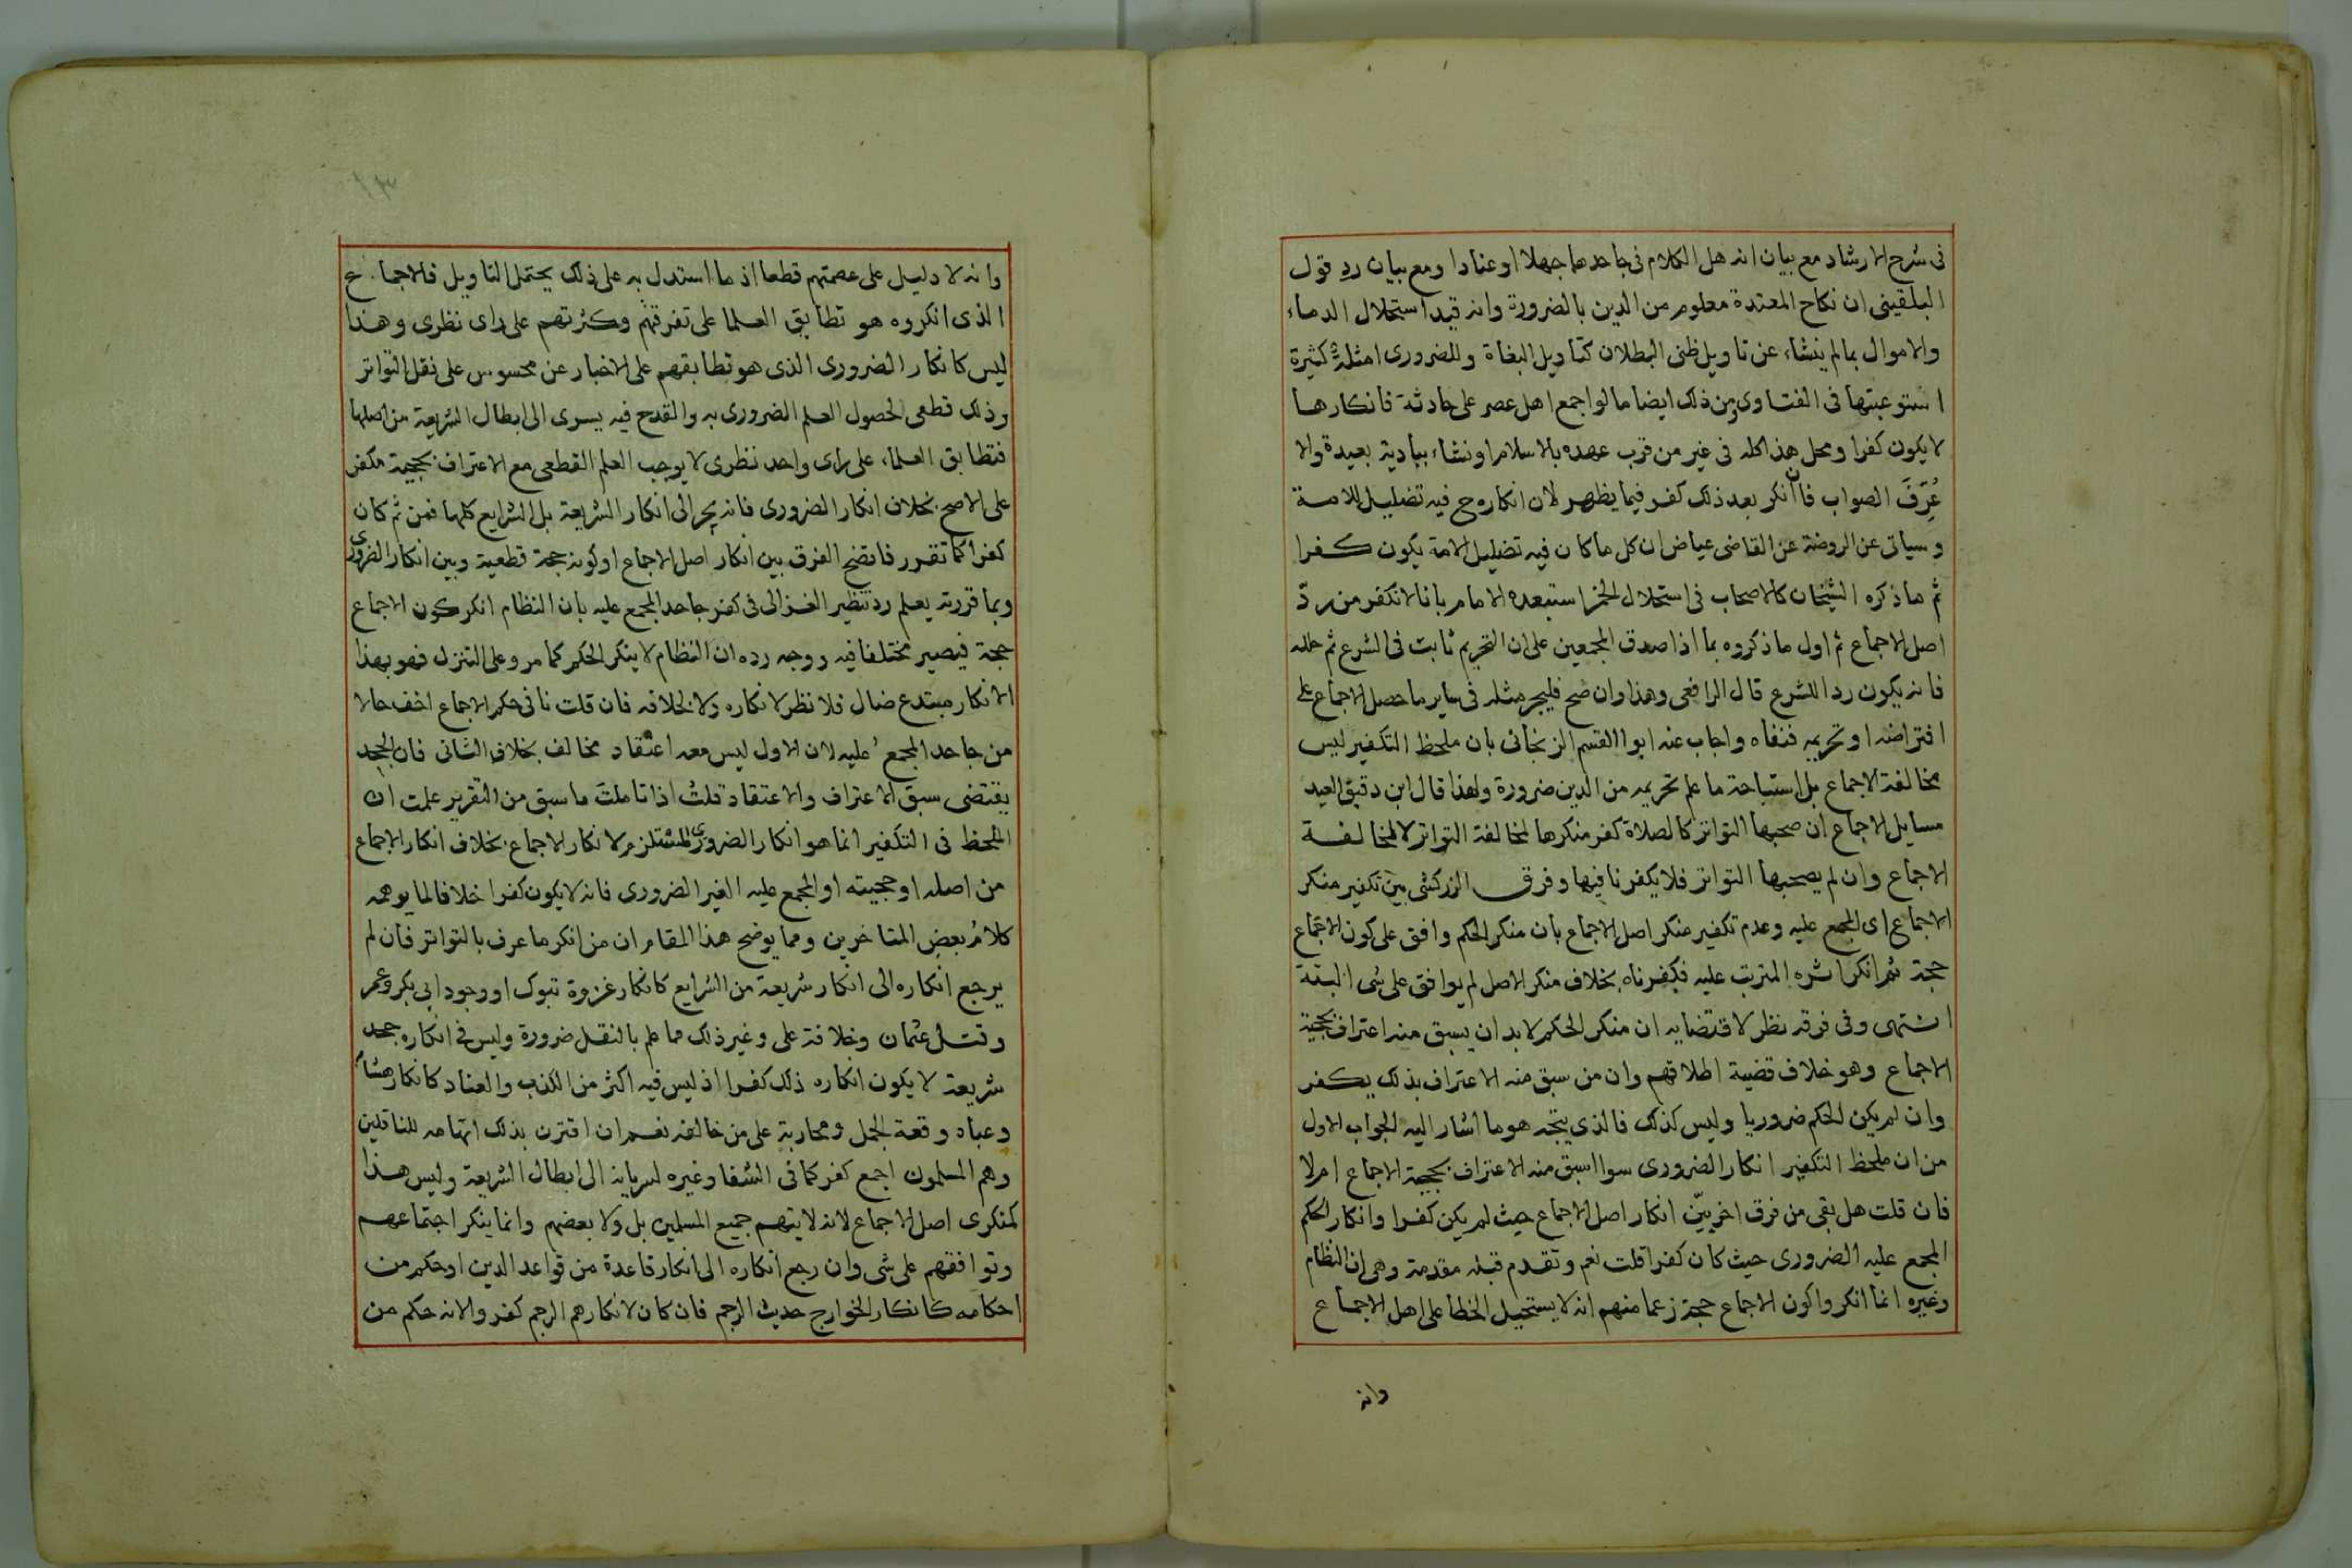 فى شرح الارشاد مع بيان انه هل الكلام فى جاحدها جهلا او عنادا ومع بيان رد قول
البلقينى ان نكاح المعتدة معلوم من الدين بالضرورة وانه قيد استحلال الدماء
والاموال بما لم ينشاء عن تاويل ظنى البطلان كتاويل البغاة وللضرورى امثلة كثيرة
استوعبتها فى الفتاوى ومن ذلك ايضا ما لو اجمع اهل عصر على حادثة فانكارها
لا يكون كفرا ومحل هذا كله فى غير من قرب عهده بالاسلام او نشاء ببادية بعيدة والا
عُرّفَ الصواب فان أنكر بعد ذلك كفر فيما يظهر لان انكاره ح فيه تضليل للامة
وسياتى عن الروضة عن القاضى عياض ان كل ما كان فيه تضليل الامة يكون كفرا
ثم ما ذكره الشيخان كالاصحاب فى استحلال الخمر استبعده الامام بانا لا نكفر من ردّ
اصل الاجماع ثم اول ما ذكروه بما اذا صدق المجمعين على ان التحريم ثابت فى الشرع ثم حلله
فانه يكون ردا للشرع قال الرافعى وهذا وان صح فليجر مثله فى ساير ما حصل الاجماع على
افتراضه او تحريمه فنفاه واجاب عنه ابوا القسم الزنجانى بان ملحظ التكفير ليس
مخالفة الاجماع بل استباحة ما علم تحريمه من الدين ضرورة ولهذا قال ابن دقيق العيد
مسايل الاجماع ان صحبها التواتر كالصلاة كفر منكرها لمخالفة التواتر لا لمخالفة
الاجماع وان لم يصحبها التواتر فلا يكفر نافيها وفرق الزركشى بين تكفير منكر
الاجماع اى المجمع عليه وعدم تكفير منكر اصل الاجماع بان منكر الحكم وافق على كون الاجماع
حجة ثم انكر اثره المترتب عليه فكفرناه بخلاف منكر الاصل لم يوافق على شى البتة
انتهى وفى فرقه نظر لاقتضايه ان منكر الحكم لا بد ان يسبق منه اعتراف بحجية
الاجماع وهو خلاف قضية اطلاقهم وان من سبق منه الاعتراف بذلك يكفر
وان لم يكن الحكم ضروريا وليس كذلك فالذى يتجه هو ما اشار اليه الجواب الاول
من ان ملحظ التكفير انكار الضرورى سوا اسبق منه الاعتراف بحجية الاجماع ام لا
فان قلت هل بقى من فرق اخر بيّن انكار اصل الاجماع حيث لم يكن كفرا وانكار الحكم
المجمع عليه الضرورى حيث كان كفرا قلت نعم وتقدم قبله مقدمة وهى ان النظام
وغيره انما انكروا كون الاجماع حجة زعما منهم انه لا يستحيل الخطا على اهل الاجماع
وانه
وانه لا دليل على عصمتهم قطعا اذ ما استدل به على ذلك يحتمل التاويل فالاجماع
الذى انكروه هو تطابق العلما على تفرقهم وكثرتهم على راى نظرى وهذا
ليس كانكار الضرورى الذى هو تطابقهم على الاخبار عن محسوس على نقل التواتر
وذلك قطعى لحصول العلم الضرورى به والقدح فيه يسرى الى ابطال الشريعة من اصلها
فتطابق العلماء على راى واحد نظرى لا يوجب العلم القطعى مع الاعتراف بحجيته مكفر
على الاصح بخلاف انكار الضرورى فانه يجر الى انكار الشريعة بل الشرايع كلها فمن ثم كان
كفرا كما تقرر فاتضح الفرق بين انكار اصل الاجماع او كونه حجة قطعية وبين انكار الضرورى
وبما قررته يعلم رد تنظير الغزالى فى كفر جاحد المجمع عليه بان النظام انكر كون الاجماع
حجة فيصير مختلفا فيه ووجه رده ان النظام لا ينكر الحكم كما مر وعلى التنزل فهو بهذا
الانكار مبتدع ضال فلا نظر لانكاره ولا لخلافه فان قلت نافى حكم الاجماع اخف حالا
من جاحد المجمع عليه لان الاول ليس معه اعتقاد مخالف بخلاف الثانى فان الجحد
يقتضى سبق الاعتراف والاعتقاد قلتُ اذا تاملتَ ما سبق من التقرير علمت ان
الملحظ فى التكفير انما هو انكار الضرورى المستلزم لانكار الاجماع بخلاف انكار الاجماع
من اصله او حجيته او المجمع عليه الغير الضرورى فانه لا يكون كفرا خلافا لما يوهمه
كلامُ بعض المتاخرين ومما يوضح هذا المقام ان من انكر ما عرف بالتواتر فان لم
يرجع انكاره الى انكار شريعة من الشرايع كانكار غزوة تبوك او وجود ابى بكر وعمر
وقتل عثمان وخلافة على وغير ذلك مما علم بالنقل ضرورة وليس فى انكاره جحد
شريعة لا يكون انكاره ذلك كفرا اذ ليس فيه اكثر من الكذب والعناد كانكار هشام
وعباد وقعة الجمل ومحاربة على من خالفه نعم ان اقترن بذلك اتهامه للناقلين
وهم المسلمون اجمع كفر كما فى الشفا وغيره لسريانه الى ابطال الشريعة وليس هذا
كمنكرى اصل الاجماع لانه لا يتهم جميع المسلمين بل ولا بعضهم وانما ينكر اجتماعهم
وتوافقهم على شى وان رجع انكاره الى انكار قاعدة من قواعد الدين او حكم من
احكامه كانكار الخوارج حديث الرجم فان كان لانكارهم الرجم كفر والانه حكم من